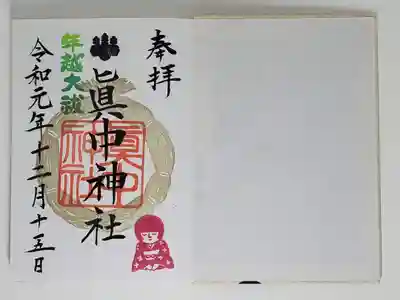 奉拝
眞中神社
年越大祓
令和元年十二月十五日